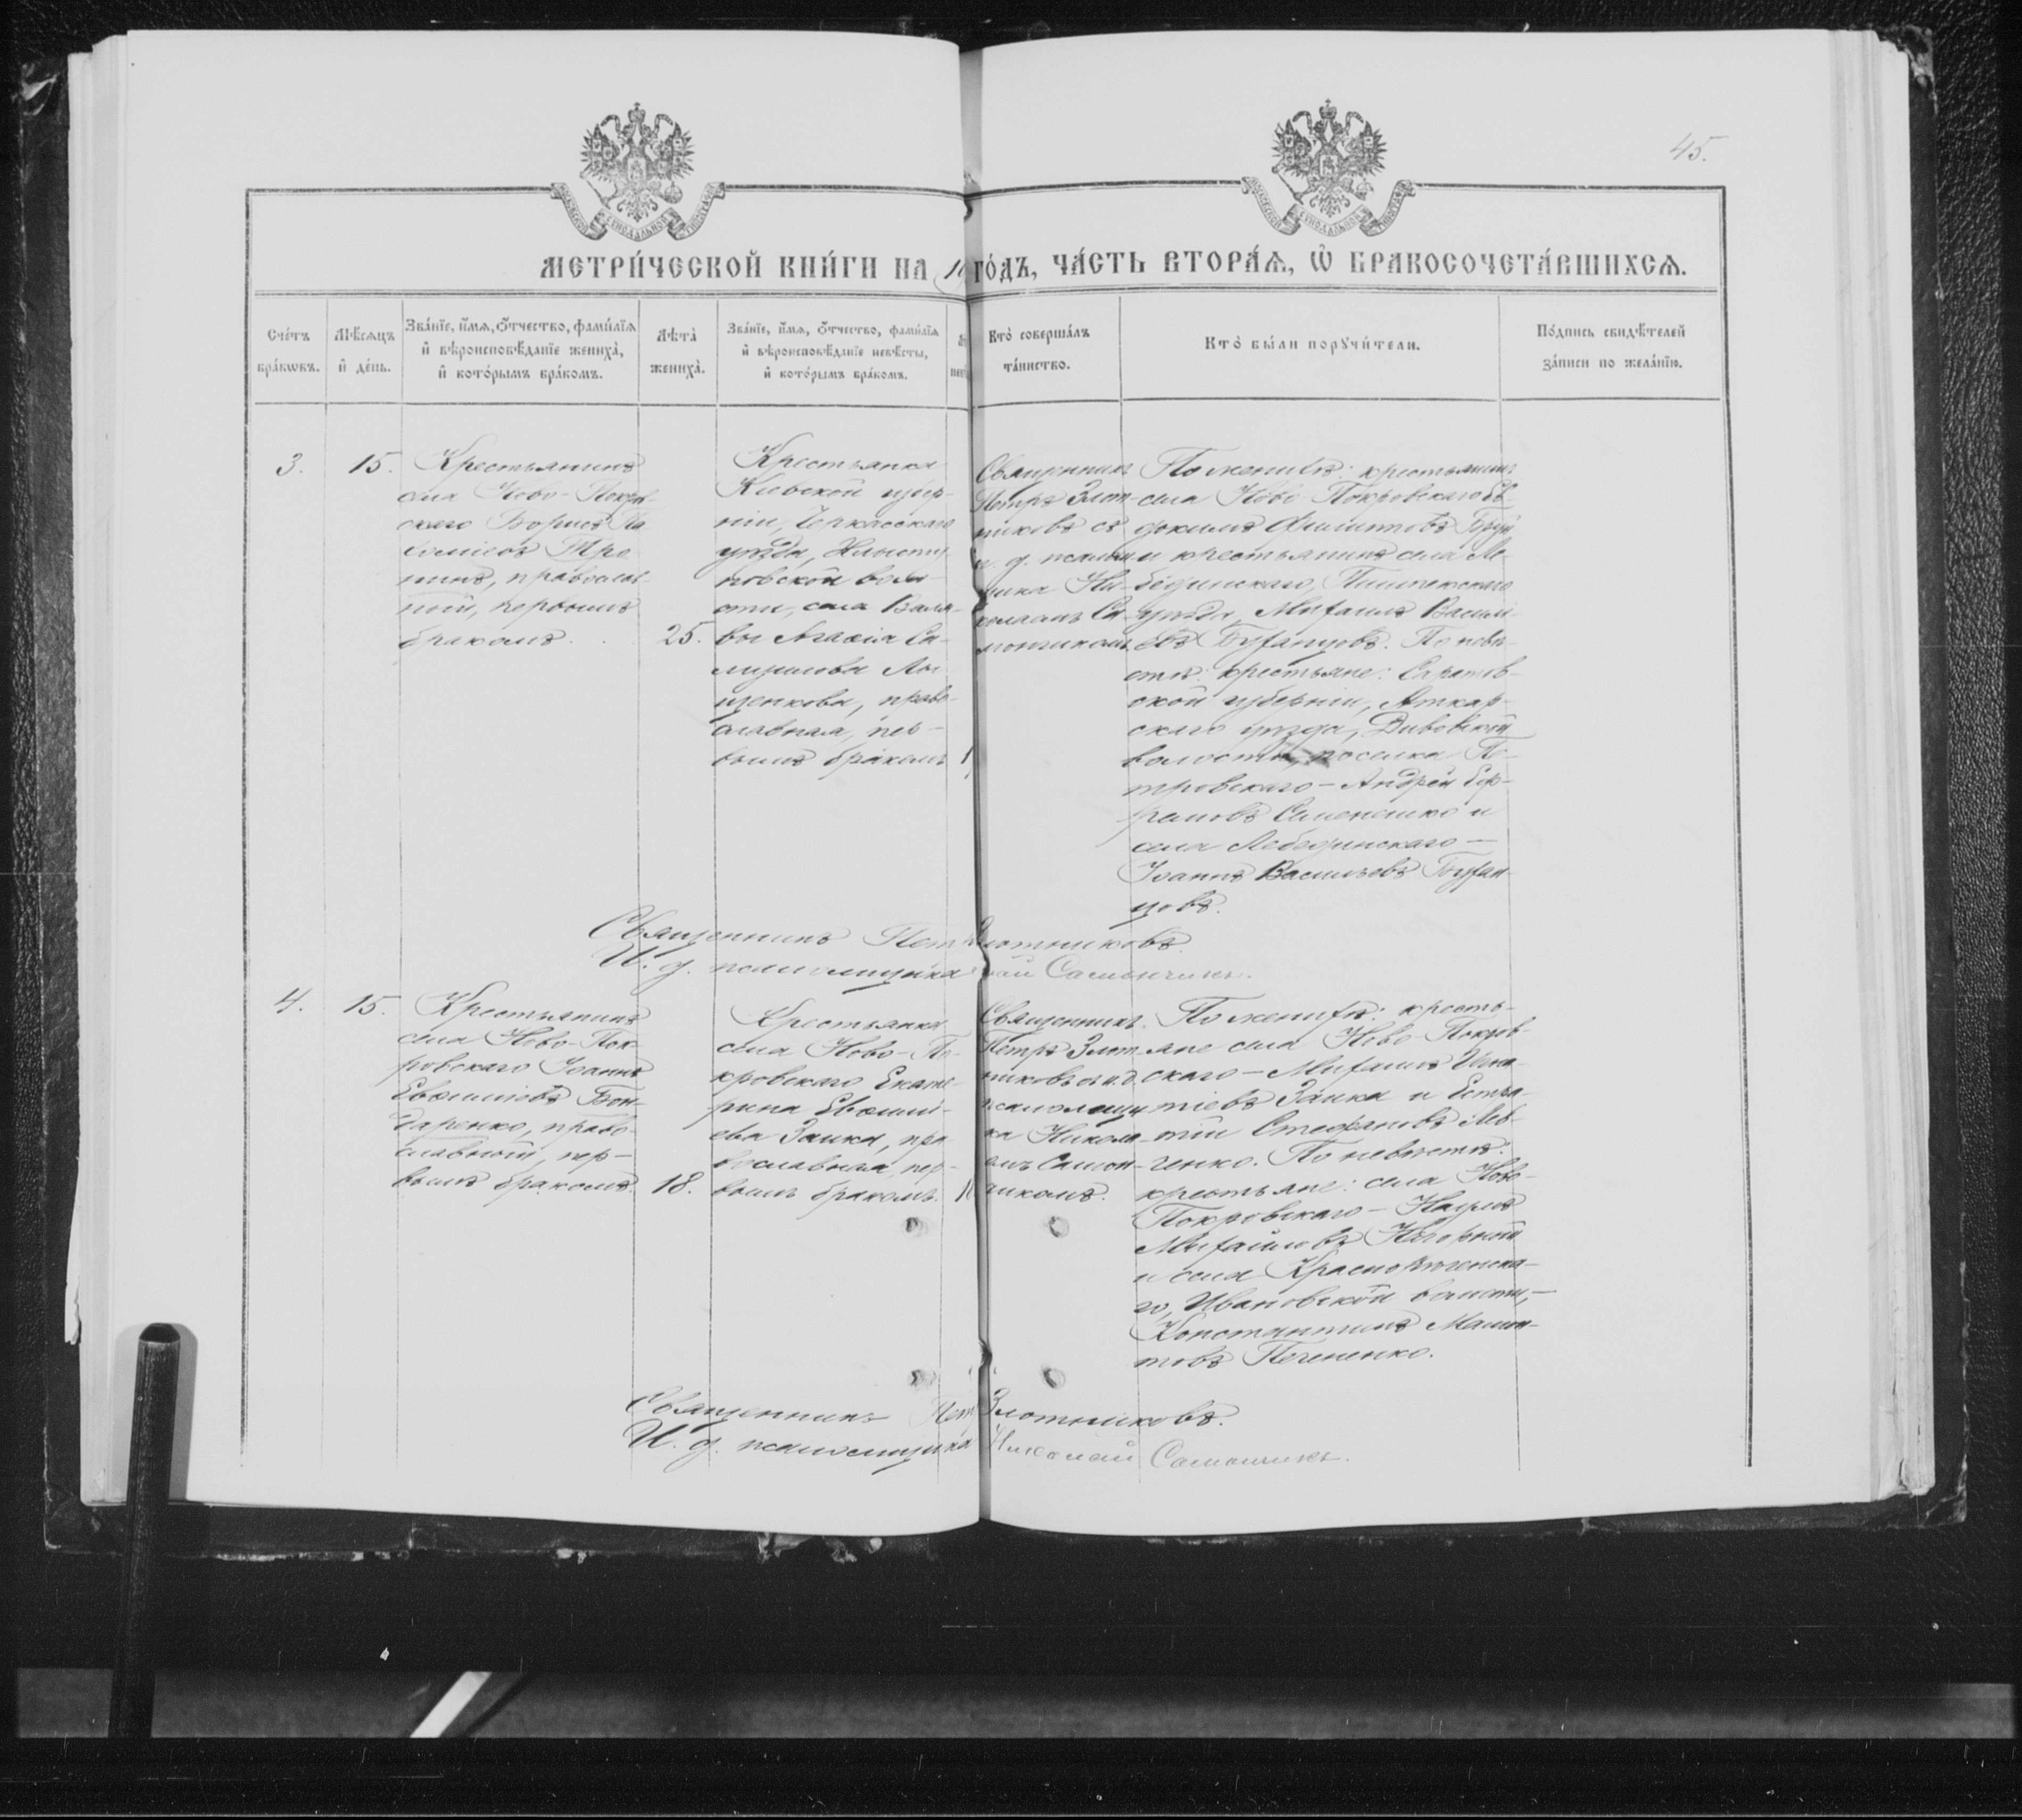 45.
МЕТРИ́ЧЕСКОЙ КНИ́ГИ НА 19 ГО́ДЪ, ЧА́СТЬ ВТОРА́Ѧ, Ѿ БРАКОСОЧЕТА́ВШИХСѦ.
Сче́тъ бра́кѡвъ.
Мѣ́сѧцъ и҆ де́нь.
Зва́нїе, и҆́мѧ, ѻ҆́тчество, фами́лїѧ и҆ вѣроисповѣ́данїе жениха̀, и҆ кото́рымъ бра́комъ.
Лѣ́та жениха̀.
Зва́нїе, и҆́мѧ, ѻ҆́тчество, фами́лїѧ и҆ вѣроисповѣ́данїе невѣ́сты, и҆ кото́рымъ бра́комъ.
Кто̀ соверша́лъ та́инство.
Кто̀ бы́ли порꙋчи́тели.
По́дпись свидѣ́телей за́писи по жела́нїю.
3.
15.
Крестьянинъ
села Ново-Покров-
скаго Борисъ Па
хоміевъ Тре
нинъ, православ-
ный, первымъ
бракомъ.
25.
Крестьянка
Кіевской губер-
ніи, Черкасскаго
уѣзда,
повской воло-
сти, села Валя-
вы Агаѳія Са-
муилова Лы
щенкова, право-
славная, пер-
вымъ бракомъ
Священникъ
Петръ Злот-
никовъ съ
и. д. псалом
щика Ни-
колаемъ Са-
мончикомъ
По женихѣ: крестьянинъ
села Ново-Покровскаго Ев-
докимъ Филипповъ
и крестьянинъ села Ле-
бединскаго, Пишпекскаго
уѣзда, Михаилъ Василь-
евъ Буханцовъ. По невѣ-
стѣ: крестьяне: Саратов-
ской губерніи, Аткар-
скаго уѣзда, Дивовской
волости, поселка Пе-
тровскаго - Андрей Еф-
ремовъ Семененко и
села Лебединскаго -
Іоаннъ Васильевъ Бухан-
цовъ.
Священникъ Петръ Злотниковъ.
И. д. псаломщика Самончикъ.
4.
15.
Крестьянинъ
села Ново-Пок-
ровскаго Іоаннъ
Евѳиміевъ Бон-
даренко, право-
славный, пер-
вымъ бракомъ.
18.
Крестьянка
села Ново-По-
кровскаго Екате-
рина Евѳимі-
ева Заика, пра
вославная, пер-
вымъ бракомъ.
Священникъ
Петръ Злот-
никовъ съ и. д.
псаломщи
ка Никола-
емъ Самон-
чикомъ.
По женихѣ: кресть-
яне села Ново-Покров-
скаго - Михаилъ Игна-
тіевъ Заика и Евста-
тій Стефановъ Лев-
ченко. По невѣстѣ:
крестьяне: села Ново-
Покровскаго - Наумъ
Михайловъ Нагорный
и села Краснорѣченска-
го, Ивановской волости, -
Константинъ Мамон-
товъ Печененко.
Священникъ Петръ Злотниковъ.
И. д. псаломщика Николай Самончикъ.